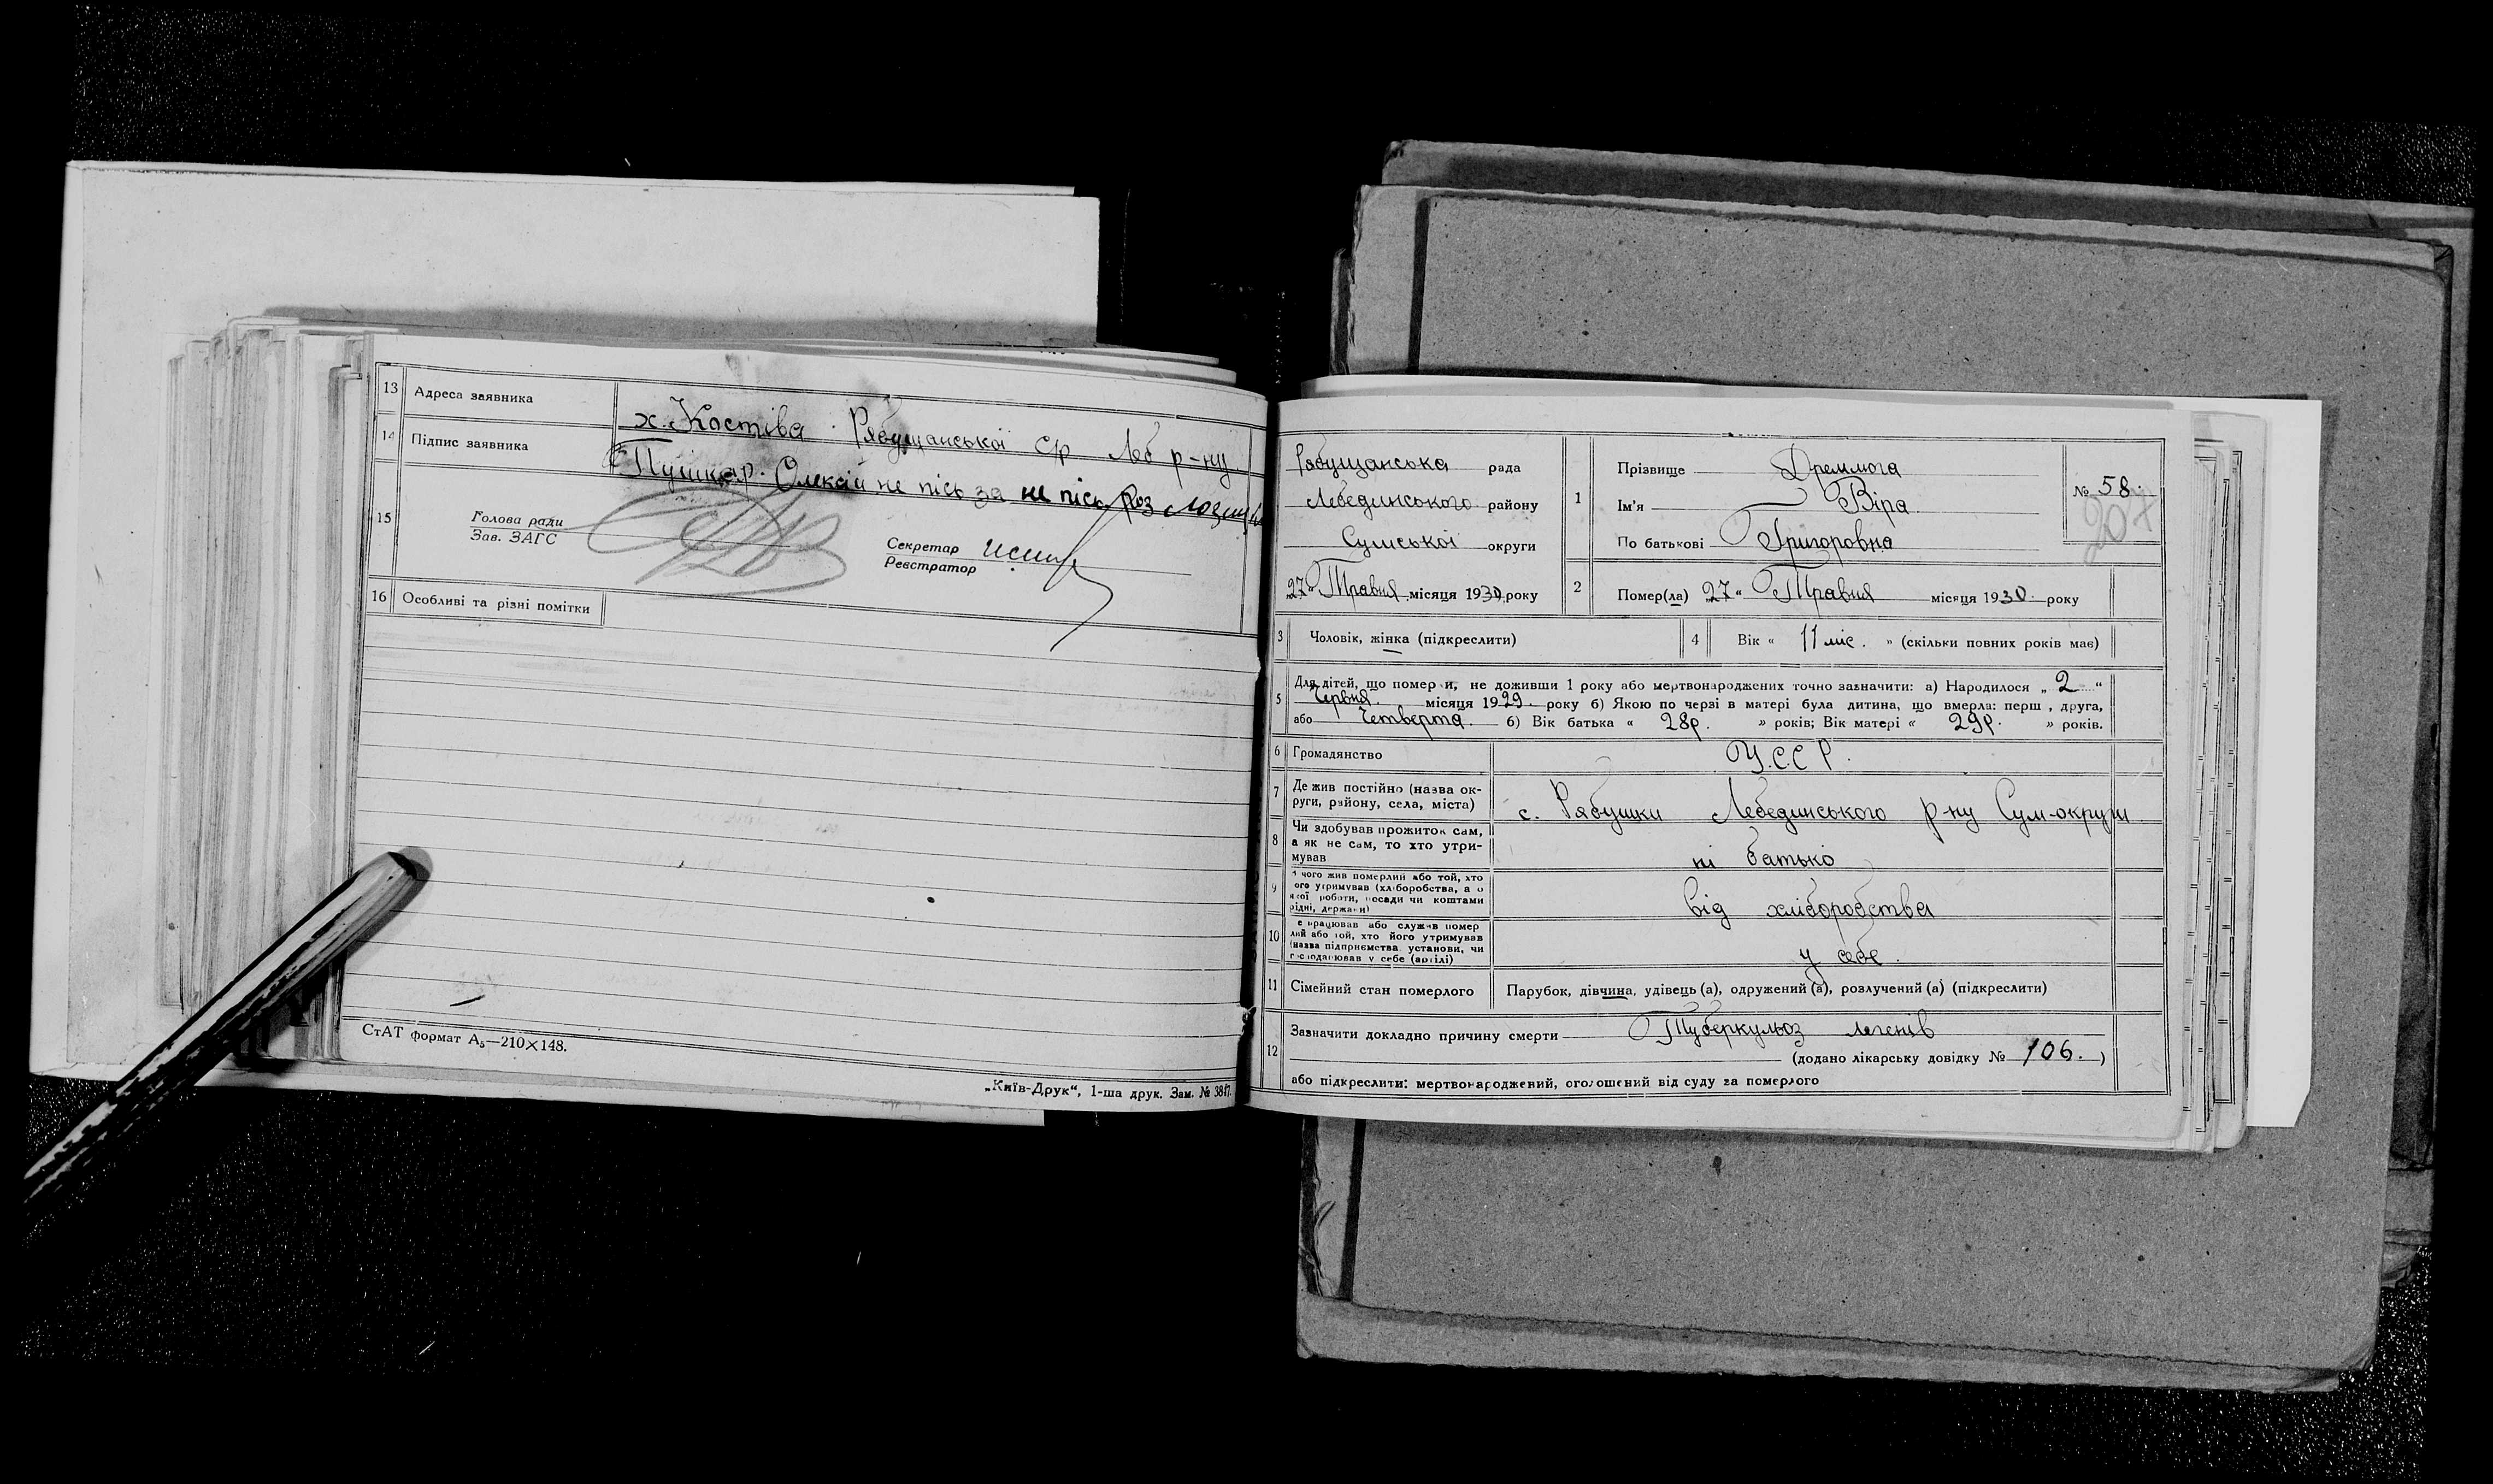 13 Адреса заявника х. Костіва Рябущанської с/р Леб р-ну
14 Підпис заявника Пушкар Олексій не пісь за не пісь роз
15 Голова ради Зав. ЗАГС
Секретар Реєстратор
16 Особливі та різні помітки
СтАТ формат А₅—210×148.
„Київ-Друк“, 1-ша друк. Зам. № 3817.
Рябущанська рада
Лебединського району
Сумської округи
27 " Травня місяця 1930 року
1 Прізвище Дремлюга
Ім'я Віра
По батькові Григоровна
№ 58.
207
2 Помер(ла) 27 " Травня місяця 1930 року
3 Чоловік, жінка (підкреслити)
4 Вік « 11 міс. » (скільки повних років має)
5 Для дітей, що померли, не доживши 1 року або мертвонароджених точно зазначити: а) Народилося „ 2 “
Червня місяця 1929 року б) Якою по черзі в матері була дитина, що вмерла: перш , друга,
або Четверта. б) Вік батька « 28р. » років; Вік матері « 29р. » років.
6 Громадянство У.С.С.Р.
7 Де жив постійно (назва округи, району, села, міста) с. Рябушки Лебединського р-ну Сум-округи
8 Чи здобував прожиток сам, а як не сам, то хто утримував ні батько
9 чого жив померлий або той, хто ого утримував (хліборобства, а о якої роботи, посади чи коштами рідні, держави) від хліборобства
10 е працював або служив помер лий або той, хто його утримував (назва підприємства установи, чи господарював у себе (артілі) у себе.
11 Сімейний стан померлого Парубок, дівчина, удівець (а), одружений (а), розлучений (а) (підкреслити)
12 Зазначити докладно причину смерти Туберкульоз легенів
(додано лікарську довідку № 106. )
або підкреслити: мертвонароджений, оголошений від суду за померлого